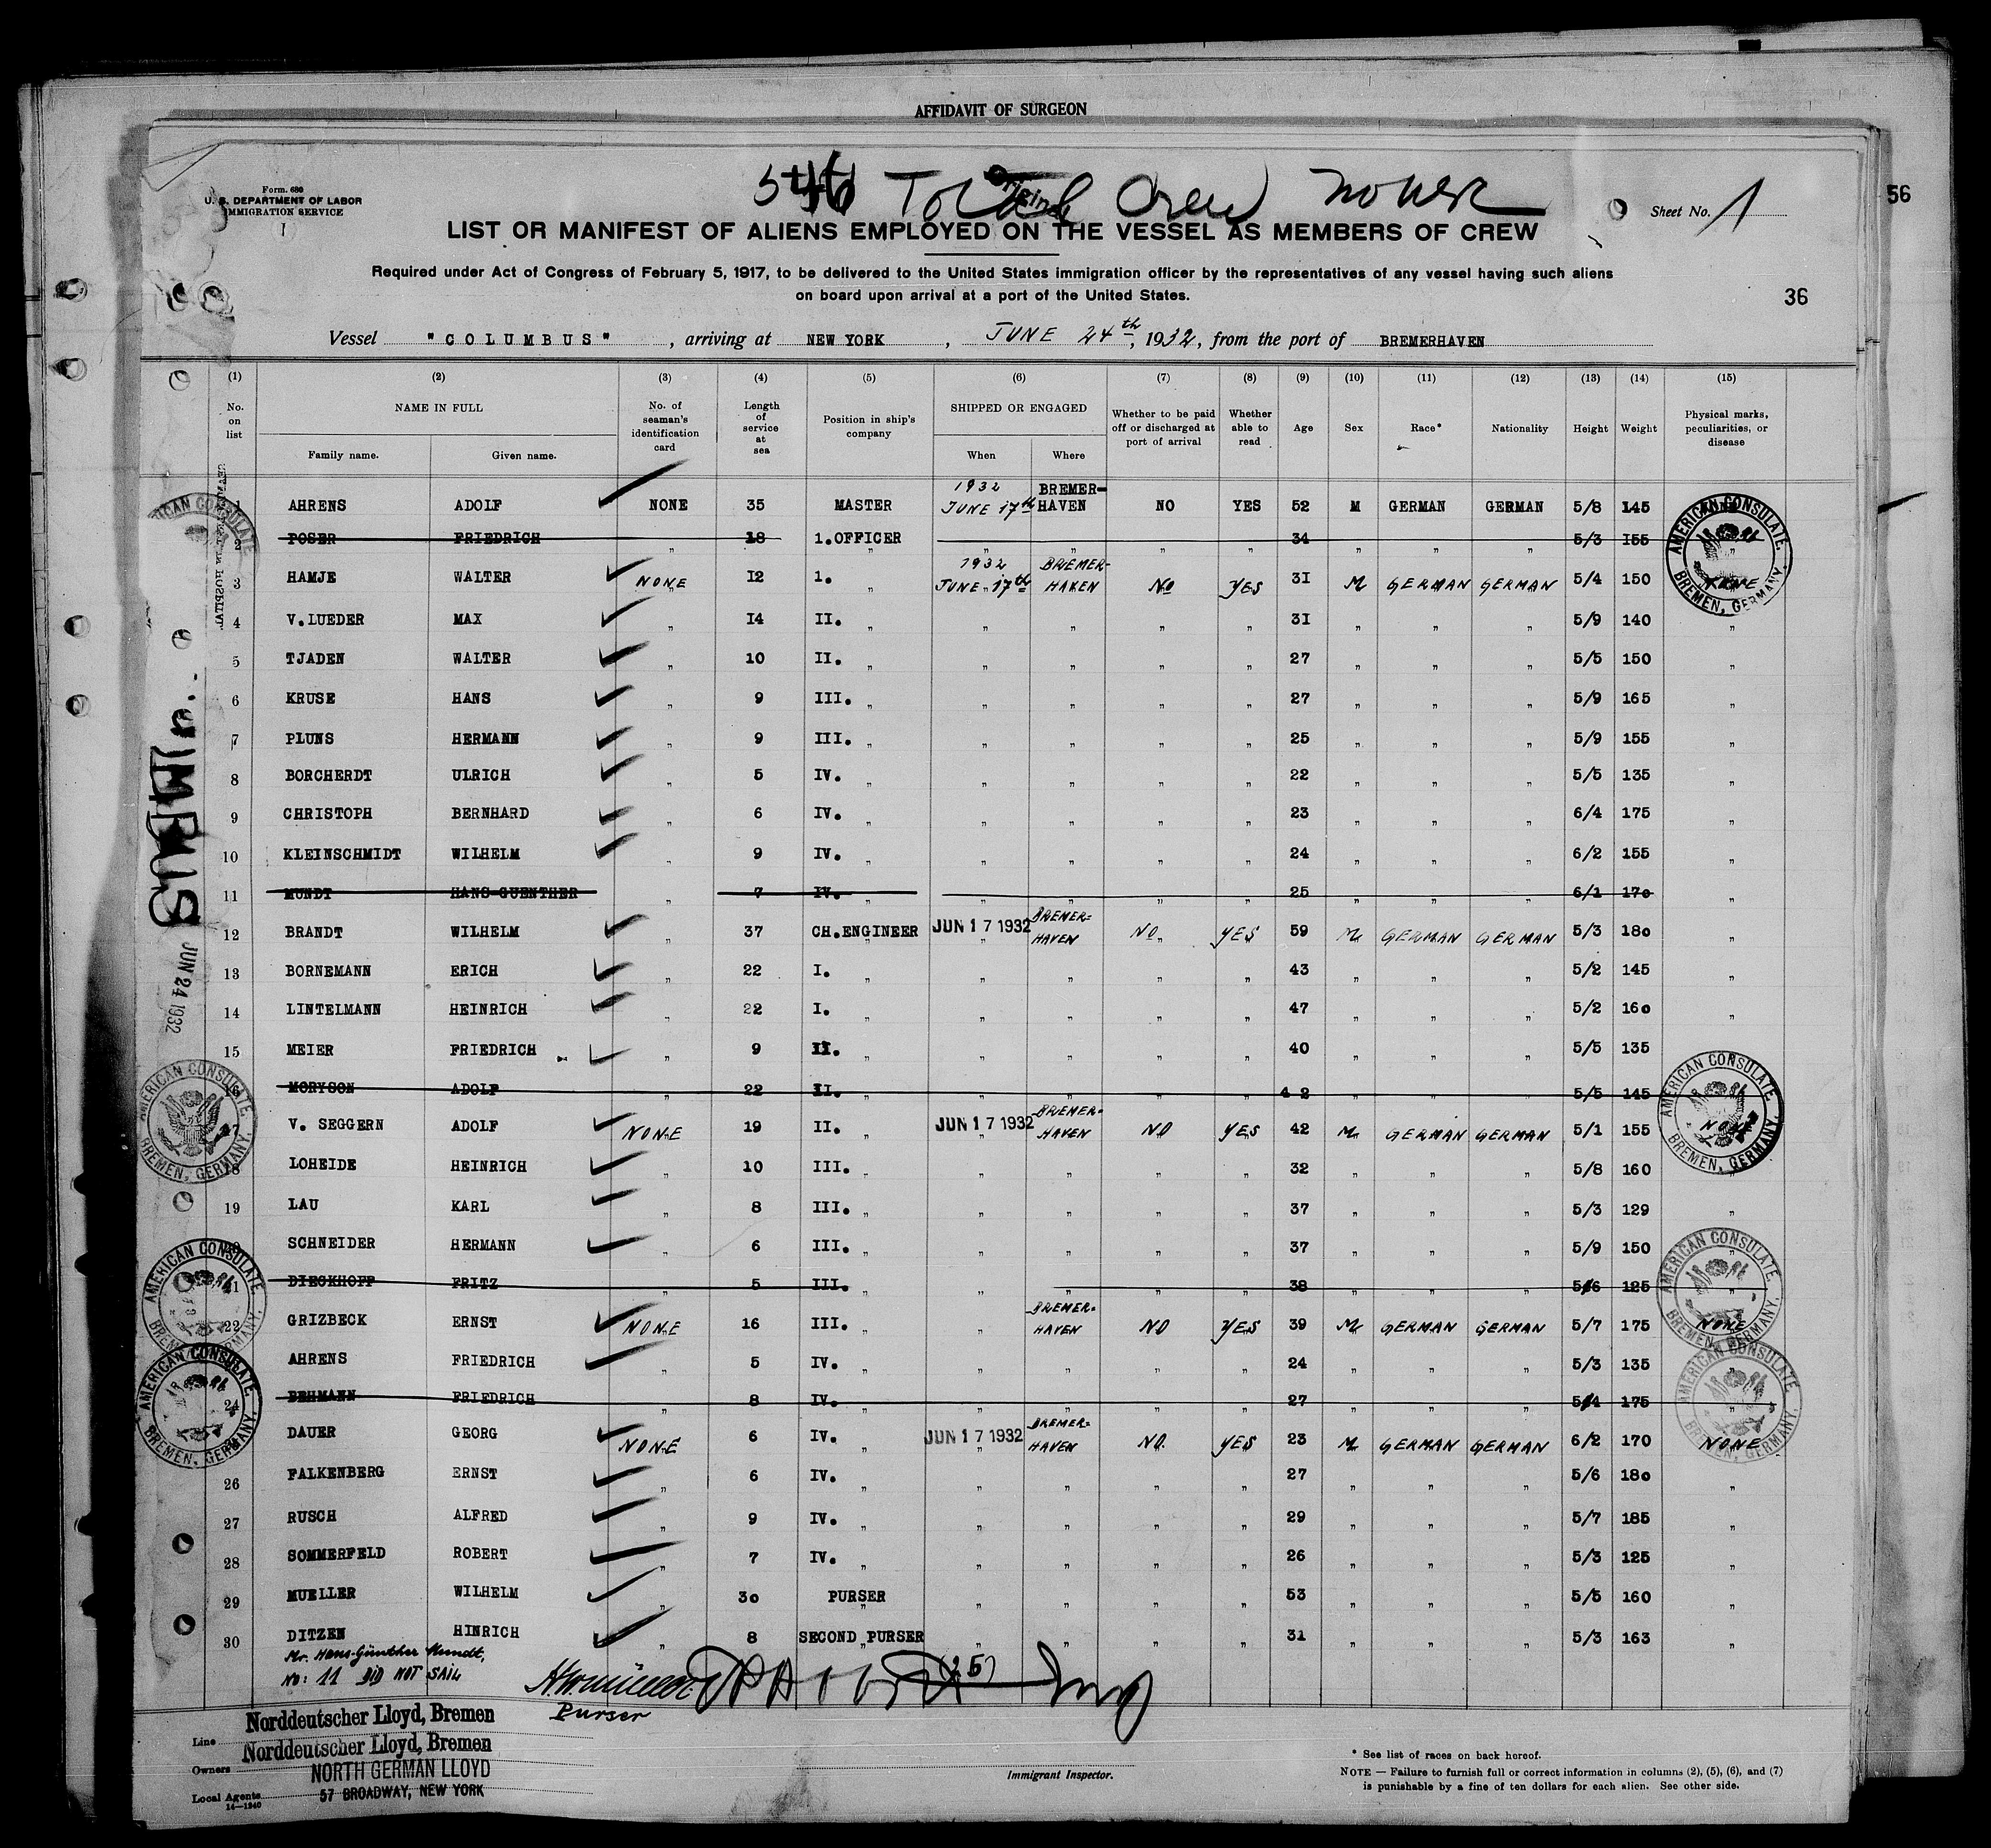 AFFIDAVIT OF SURGEON
Form. 680
U. S. DEPARTMENT OF LABOR
IMMIGRATION SERVICE
1
546 Total Crew
Original
Sheet No. 1
56
LIST OR MANIFEST OF ALIENS EMPLOYED ON THE VESSEL AS MEMBERS OF CREW
Required under Act of Congress of February 5, 1917, to be delivered to the United States immigration officer by the representatives of any vessel having such aliens
on board upon arrival at a port of the United States.
36
Vessel "COLUMBUS", arriving at NEW YORK, JUNE 24th, 1932, from the port of BREMERHAVEN
(1) (2) (3) (4) (5) (6) (7) (8) (9) (10) (11) (12) (13) (14) (15)
No. on list NAME IN FULL Family name. Given name. No. of seaman's identification card Length of service at sea Position in ship's company SHIPPED OR ENGAGED When Where Whether to be paid off or discharged at port of arrival Whether able to read Age Sex Race* Nationality Height Weight Physical marks, peculiarities, or disease
1 AHRENS ADOLF NONE 35 MASTER 1932 JUNE 17th BREMER-HAVEN NO YES 52 M GERMAN GERMAN 5/8 145
2 POSER FRIEDRICH " 18 1.OFFICER " " " " 34 " " " 5/3 155 "
3 HAMJE WALTER NONE 12 1. " 1932 JUNE 17th BREMER-HAVEN NO YES 31 M GERMAN GERMAN 5/4 150 NONE
4 V.LUEDER MAX " 14 II. " " " " " 31 " " " 5/9 140 "
5 TJADEN WALTER " 10 II. " " " " " 27 " " " 5/5 150 "
6 KRUSE HANS " 9 III. " " " " " 27 " " " 5/9 165 "
7 PLUNS HERMANN " 9 III. " " " " " 25 " " " 5/9 155 "
8 BORCHERDT ULRICH " 5 IV. " " " " " 22 " " " 5/5 135 "
9 CHRISTOPH BERNHARD " 6 IV. " " " " " 23 " " " 6/4 175 "
10 KLEINSCHMIDT WILHELM " 9 IV. " " " " " 24 " " " 6/2 155 "
11 MUNDT HANS-GUENTHER " 7 IV. " " " " " 25 " " " 6/1 170 "
12 BRANDT WILHELM " 37 CH.ENGINEER JUN 17 1932 BREMER-HAVEN NO YES 59 M GERMAN GERMAN 5/3 180 "
13 BORNEMANN ERICH " 22 I. " " " " " 43 " " " 5/2 145 "
14 LINTELMANN HEINRICH " 22 I. " " " " " 47 " " " 5/2 160 "
15 MEIER FRIEDRICH " 9 II. " " " " " 40 " " " 5/5 135 "
16 MORYSON ADOLF " 22 II. " " " " " 42 " " " 5/5 145
17 V. SEGGERN ADOLF NONE 19 II. " JUN 17 1932 BREMER-HAVEN NO YES 42 M GERMAN GERMAN 5/1 155 NONE
18 LOHEIDE HEINRICH " 10 III. " " " " " 32 " " " 5/8 160 "
19 LAU KARL " 8 III. " " " " " 37 " " " 5/3 129 "
20 SCHNEIDER HERMANN " 6 III. " " " " " 37 " " " 5/9 150 "
21 DIECKHOFF FRITZ " 5 III. " " " " " 38 " " " 5/6 125 "
22 GRIZBECK ERNST NONE 16 III. " " BREMER-HAVEN NO YES 39 M GERMAN GERMAN 5/7 175 NONE
AHRENS FRIEDRICH " 5 IV. " " " " " 24 " " " 5/3 135
24 BEHMANN FRIEDRICH " 8 IV. " " " " " 27 " " " 5/4 175 "
DAUER GEORG NONE 6 IV. " JUN 17 1932 BREMER-HAVEN NO. YES 23 M GERMAN GERMAN 6/2 170 NONE
26 FALKENBERG ERNST " 6 IV. " " " " " 27 " " " 5/6 180 "
27 RUSCH ALFRED " 9 IV. " " " " " 29 " " " 5/7 185 "
28 SOMMERFELD ROBERT " 7 IV. " " " " " 26 " " " 5/3 125 "
29 MUELLER WILHELM " 30 PURSER " " " " 53 " " " 5/5 160 "
30 DITZEN HINRICH " 8 SECOND PURSER " " " " 31 " " " 5/3 163 "
Mr. Hans-Günther Mundt,
NO: 11 DID NOT SAIL
(25)
Purser
AMERICAN CONSULATE, BREMEN, GERMANY.
AMERICAN CONSULATE, BREMEN, GERMANY.
AMERICAN CONSULATE, BREMEN, GERMANY.
AMERICAN CONSULATE, BREMEN, GERMANY.
AMERICAN CONSULATE, BREMEN, GERMANY.
AMERICAN CONSULATE, BREMEN, GERMANY.
AMERICAN CONSULATE, BREMEN, GERMANY.
JUN 24 1932
Line Norddeutscher Lloyd, Bremen
Owners Norddeutscher Lloyd, Bremen
Local Agents NORTH GERMAN LLOYD
57 BROADWAY, NEW YORK
14—1240
Immigrant Inspector.
* See list of races on back hereof.
NOTE — Failure to furnish full or correct information in columns (2), (5), (6), and (7)
is punishable by a fine of ten dollars for each alien. See other side.